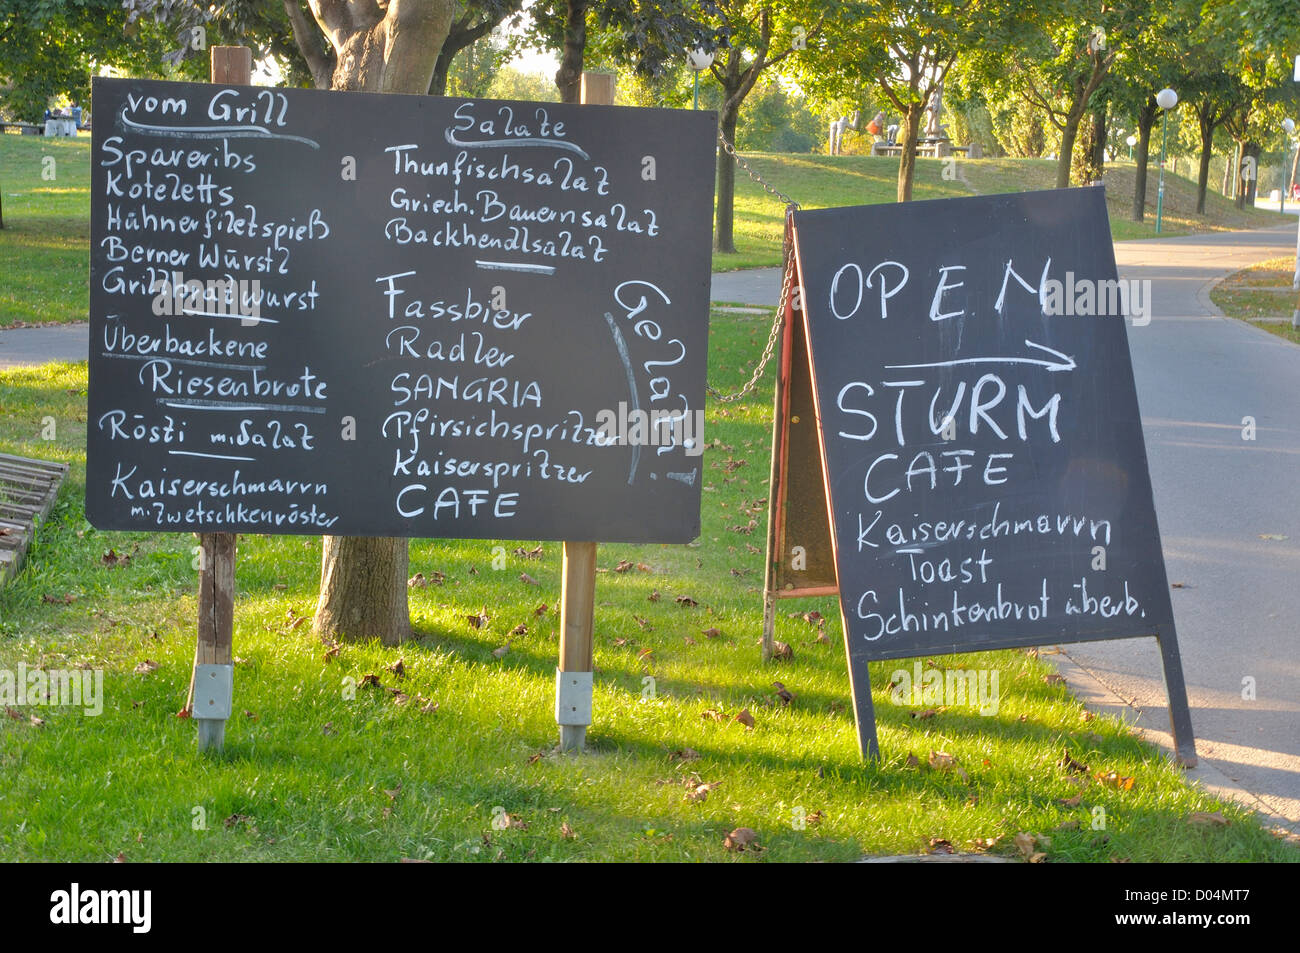 vom Grill
Spareribs
Koteletts
Hühnerfiletspieß
Berner Würstl
Grillbratwurst
Überbackene
Riesenbrote
Rösti m. Salat
Kaiserschmarrn
m. Zwetschkenröster
Salate
Thunfischsalat
Griech. Bauernsalat
Backhendlsalat
Fassbier
Radler
SANGRIA
Pfirsichspritzer
Kaiserspritzer
CAFE
Gelati!
OPEN
STURM
CAFE
Kaiserschmarrn
Toast
Schinkenbrot überb.
alamy
Image ID: D04MT7
www.alamy.com